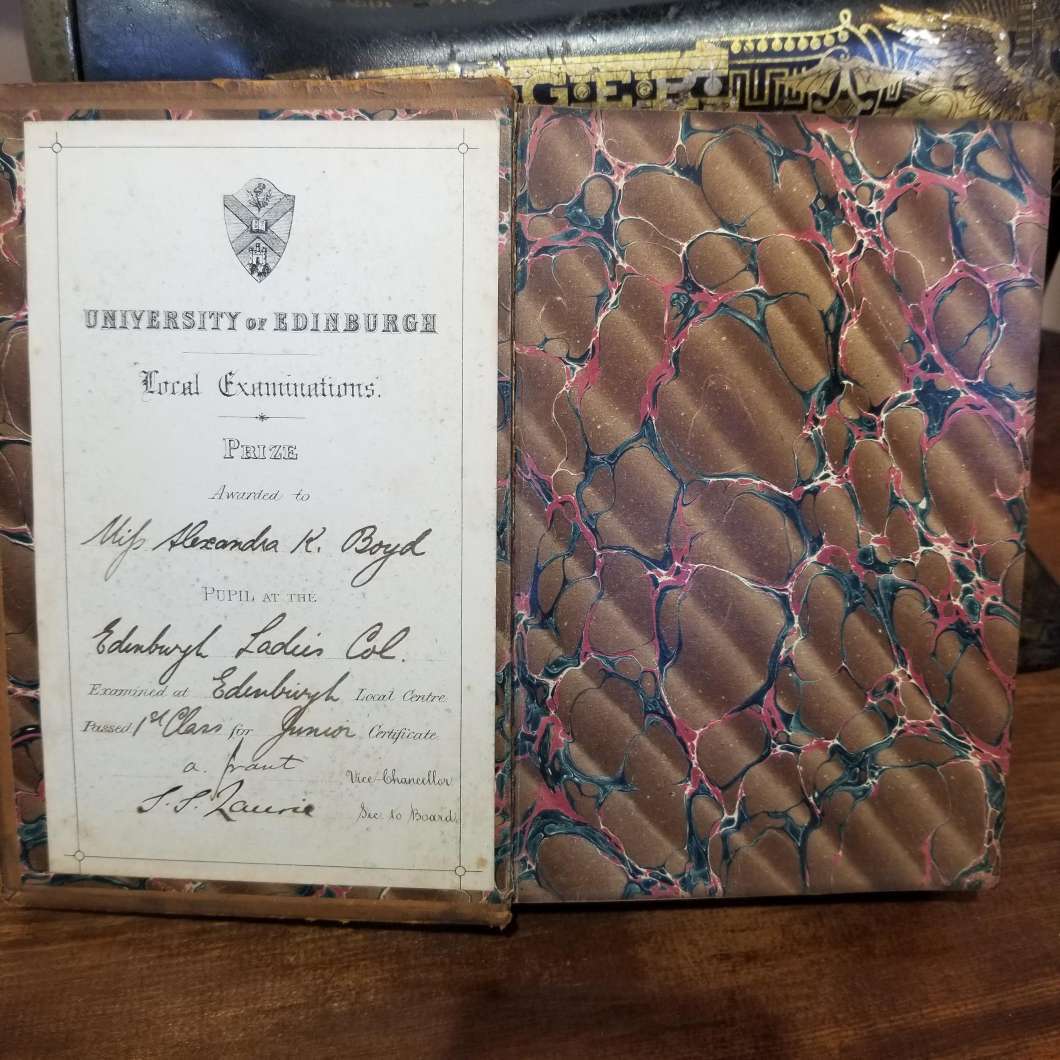 G·E·R
UNIVERSITY OF EDINBURGH
Local Examinations.
PRIZE
Awarded to
Miſs Alexandra K. Boyd
PUPIL AT THE
Edinburgh Ladies Col.
Examined at Edinburgh Local Centre
Passed 1st Class for Junior Certificate
A. Grant Vice-Chancellor
S. S. Laurie Sec. to Board